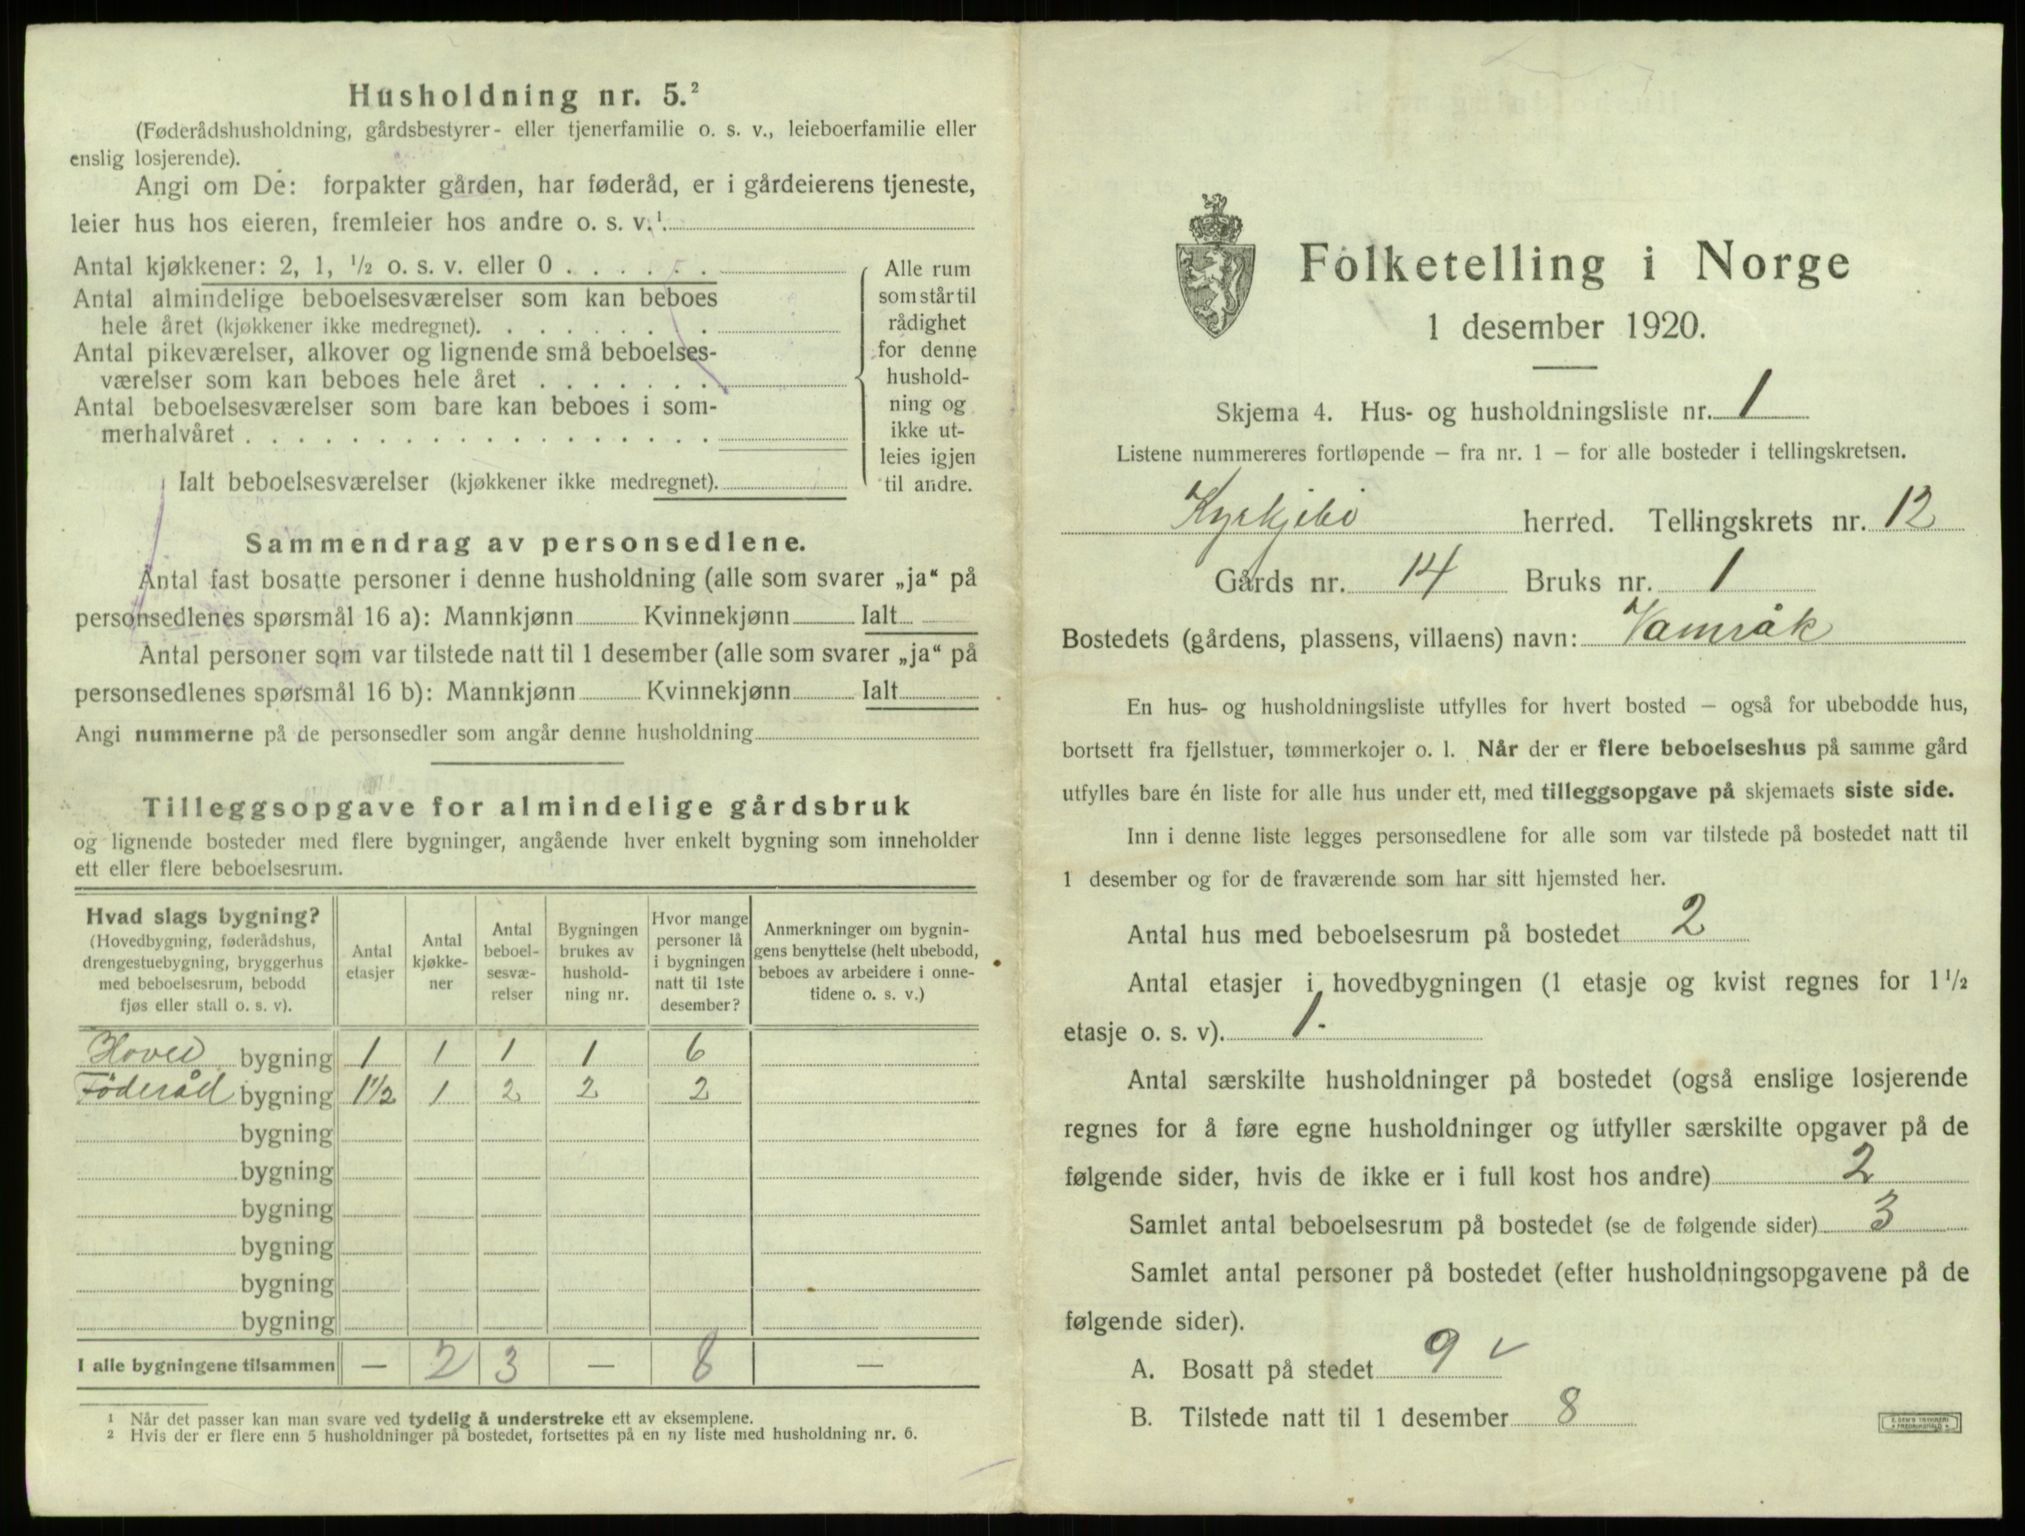 Husholdning nr. 5.²
(Føderådshusholdning, gårdsbestyrer- eller tjenerfamilie o. s. v., leieboerfamilie eller
enslig losjerende).
Angi om De: forpakter gården, har føderåd, er i gårdeierens tjeneste,
leier hus hos eieren, fremleier hos andre o. s. v.¹
Antal kjøkkener: 2, 1, ½ o. s. v. eller 0
Antal almindelige beboelsesværelser som kan beboes
hele året (kjøkkener ikke medregnet).
Antal pikeværelser, alkover og lignende små beboelses-
værelser som kan beboes hele året
Antal beboelsesværelser som bare kan beboes i som-
merhalvåret
Ialt beboelsesværelser (kjøkkener ikke medregnet).
Alle rum
som står til
rådighet
for denne
hushold-
ning og
ikke ut-
leies igjen
til andre.
Sammendrag av personsedlene.
Antal fast bosatte personer i denne husholdning (alle som svarer „ja“ på
personsedlenes spørsmål 16 a): Mannkjønn Kvinnekjønn Ialt
Antal personer som var tilstede natt til 1 desember (alle som svarer „ja“ på
personsedlenes spørsmål 16 b): Mannkjønn Kvinnekjønn Ialt
Angi nummerne på de personsedler som angår denne husholdning
Tilleggsopgave for almindelige gårdsbruk
og lignende bosteder med flere bygninger, angående hver enkelt bygning som inneholder
ett eller flere beboelsesrum.
Hvad slags bygning?
(Hovedbygning, føderådshus,
drengestuebygning, bryggerhus
med beboelsesrum, bebodd
fjøs eller stall o. s. v).
Antal
etasjer
Antal
kjøkke-
ner
Antal
beboel-
sesvæ-
relser
Bygningen
brukes av
hushold-
ning nr.
Hvor mange
personer lå
i bygningen
natt til 1ste
desember?
Anmerkninger om bygnin-
gens benyttelse (helt ubebodd,
beboes av arbeidere i onne-
tidene o. s. v.)
Hoved bygning 1 1 1 1 6
Föderåd bygning 1½ 1 2 2 2
bygning
bygning
bygning
bygning
bygning
bygning
I alle bygningene tilsammen — 2 3 — 8 —
¹ Når det passer kan man svare ved tydelig å understreke ett av eksemplene.
² Hvis der er flere enn 5 husholdninger på bostedet, fortsettes på en ny liste med husholdning nr. 6.
Folketelling i Norge
1 desember 1920.
Skjema 4. Hus- og husholdningsliste nr. 1
Listene nummereres fortløpende – fra nr. 1 – for alle bosteder i tellingskretsen.
Kyrkjebö herred. Tellingskrets nr. 12
Gårds nr. 14 Bruks nr. 1
Bostedets (gårdens, plassens, villaens) navn: Vamråk
En hus- og husholdningsliste utfylles for hvert bosted – også for ubebodde hus,
bortsett fra fjellstuer, tømmerkojer o. l. Når der er flere beboelseshus på samme gård
utfylles bare én liste for alle hus under ett, med tilleggsopgave på skjemaets siste side.
Inn i denne liste legges personsedlene for alle som var tilstede på bostedet natt til
1 desember og for de fraværende som har sitt hjemsted her.
Antal hus med beboelsesrum på bostedet 2
Antal etasjer i hovedbygningen (1 etasje og kvist regnes for 1½
etasje o. s. v). 1.
Antal særskilte husholdninger på bostedet (også enslige losjerende
regnes for å føre egne husholdninger og utfyller særskilte opgaver på de
følgende sider, hvis de ikke er i full kost hos andre) 2
Samlet antal beboelsesrum på bostedet (se de følgende sider) 3
Samlet antal personer på bostedet (efter husholdningsopgavene på de
følgende sider).
A. Bosatt på stedet 9 ✓
B. Tilstede natt til 1 desember 8